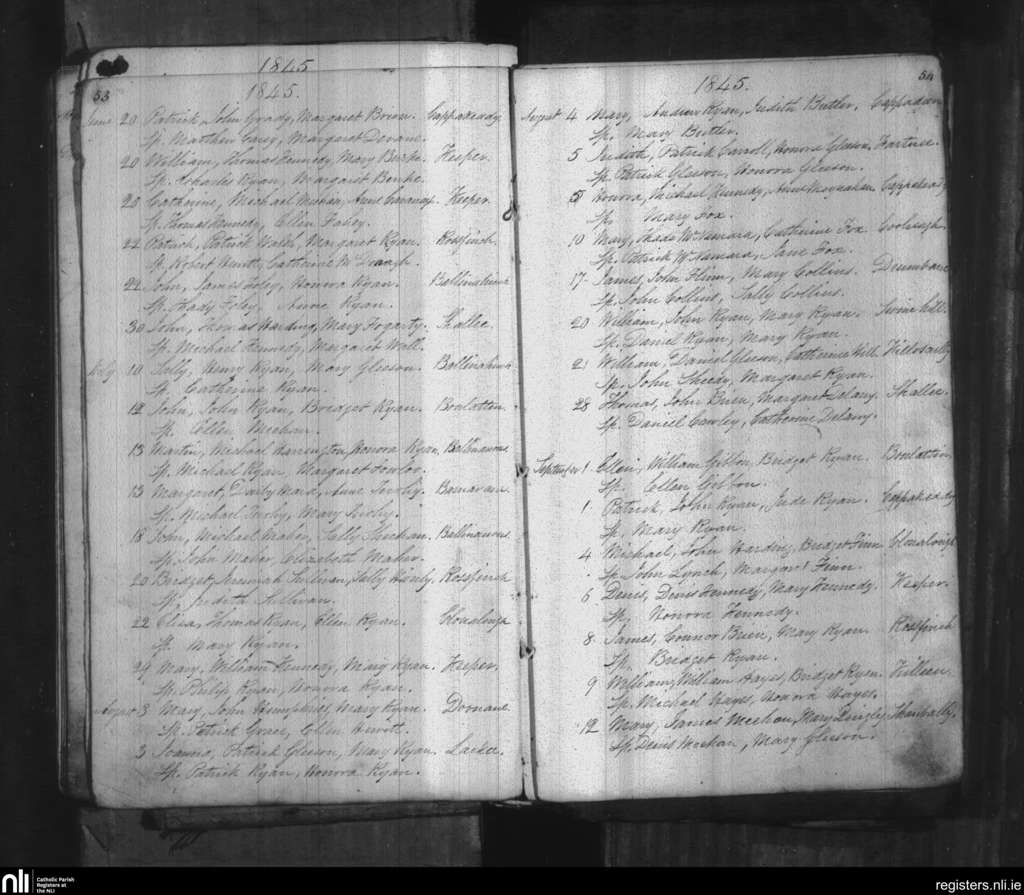 1845
53
1845.
June 20 Patrick, John Grady, Margaret Brien. Cappakeady
Sp. Matthew Carey, Margaret
20 William, Thomas Kennedy, Mary Burke. Keeper.
Sp. Charles Ryan, Margaret Burke.
20 Catherine, Michael Mehan, Anne Keeper.
Sp. Thomas Kennedy, Ellen Fahey.
22 Patrick, Patrick Walsh, Margaret Ryan. Rossfinch.
Sp. Robert Catherine
22 John, James Foley, Honora Ryan. Ballinahinch
Sp. Thady Foley, Anne Ryan.
30 John, Thomas Harding, Mary Fogarty. Shallee.
Sp. Michael Kennedy, Margaret Wall.
July 10 Henry Ryan, Mary Gleeson. Ballinahinch
Sp. Catherine Ryan.
12 John, John Ryan, Bridget Ryan. Boulatten.
Sp. Ellen Meehan.
13 Martin, Michael Harrington, Honora Ryan,
Sp. Michael Ryan, Margaret
13 Margaret, Anne
Sp. Michael Mary
18 John, Michael Maher, Sally Sheehan.
Sp. John Maher, Elizabeth Maher.
20 Bridget, Jeremiah Sullivan, Sally Rossfinch
Sp. Judith Sullivan.
22 Eliza, Thomas Ryan, Ellen Ryan. Clonalough
Sp. Mary Ryan.
24 Mary, William Kennedy, Mary Ryan. Keeper.
Sp. Philip Ryan, Honora Ryan.
August 3 Mary, John Humphries, Mary Ryan. Doonane.
Sp. Patrick Grace, Ellen Hewitt.
3 Joanna, Patrick Gleeson, Mary Ryan. Lacka.
Sp. Patrick Ryan, Honora Ryan.
54
1845.
August 4 Mary, Andrew Ryan, Judith Butler. Cappadan
Sp. Mary Butler.
5 Judith, Patrick Carroll, Honora Gleeson,
Sp. Patrick Gleeson, Honora Gleeson.
5 Honora, Michael Kennedy, Anne
Sp. Mary Fox.
10 Mary, Thade McNamara, Catherine Fox.
Sp. Patrick McNamara, Jane Fox.
17 James, John Flinn, Mary Collins.
Sp. John Collins, Sally Collins.
20 William, John Ryan, Mary Ryan.
Sp. Daniel Ryan, Mary Ryan.
21 William, Daniel Gleeson, Catherine Hill.
Sp. John Sheedy, Margaret Ryan.
28 Thomas, John Brien, Margaret Delany. Shallee.
Sp. Daniel Cawley, Catherine Delany.
September 1 Ellen, William Gibbon, Bridget Ryan. Boulatten
Sp. Ellen Gibbon.
1 Patrick, John Ryan, Jude Ryan. Cappakeady
Sp. Mary Ryan.
4 Michael, John Harding, Bridget Finn Clonalough
Sp. John Lynch, Margaret Finn.
6 Denis, Denis Kennedy, Mary Kennedy. Keeper.
Sp. Honora Kennedy.
8 James, Connor Brien, Mary Ryan. Rossfinch
Sp. Bridget Ryan.
9 William, William Hayes, Bridget Ryan. Killeen.
Sp. Michael Hayes, Honora Hayes.
12 Mary, James Meehan, Mary
Sp. Denis Meehan, Mary Gleeson.
nli Catholic Parish
Registers at
the NLI
registers.nli.ie